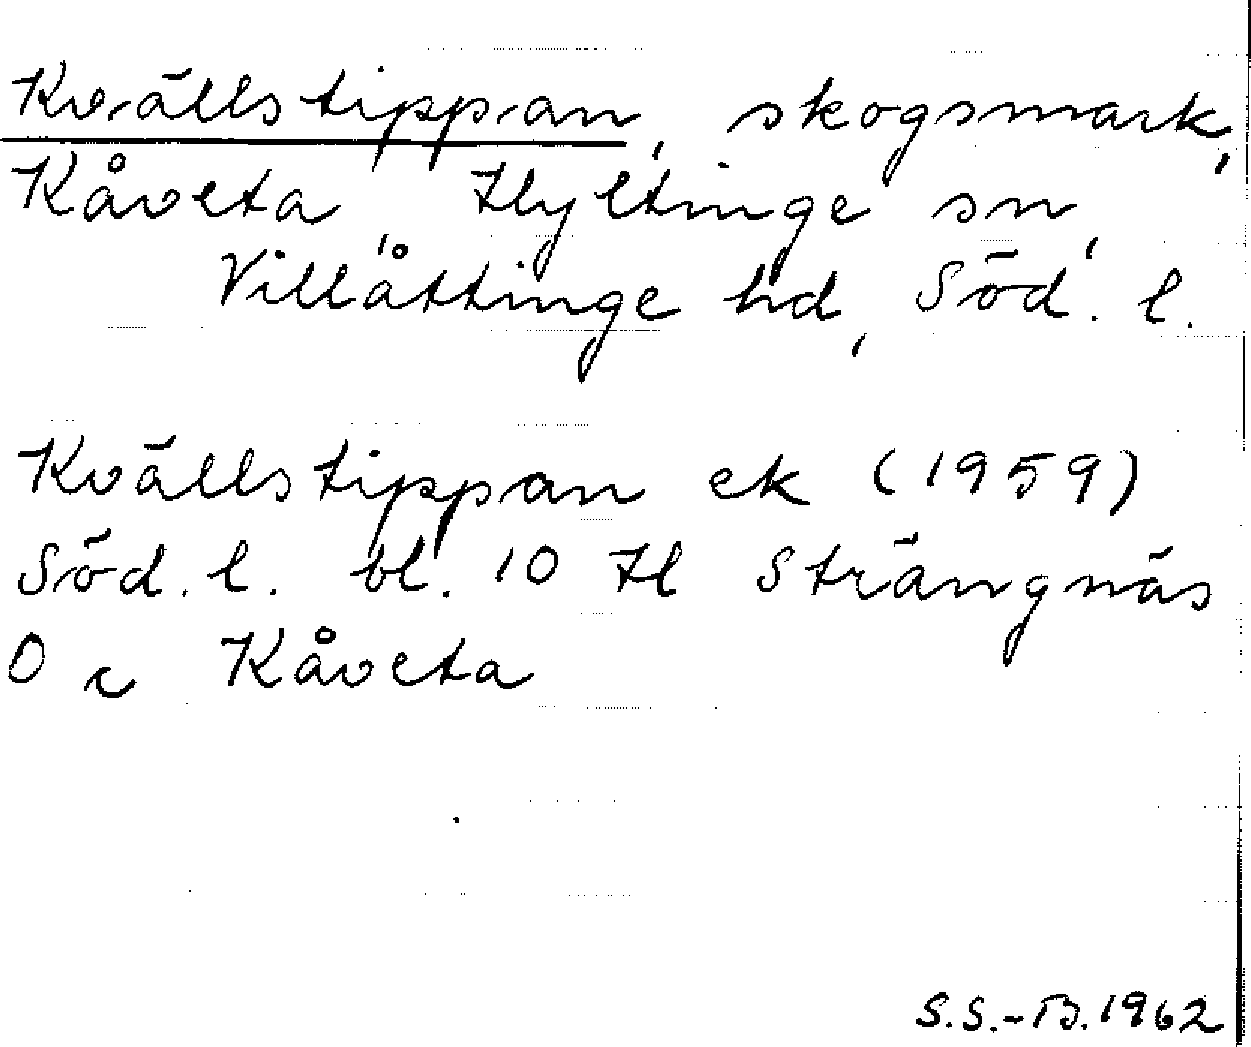 Kvällstippan, skogsmark,
Kåveta, Hyltinge sn,
Villåttinge hd, Söd. l.
Kvällstippan ek (1959)
Söd. l. bl. 10 H Strängnäs
O c Kåveta
S.S.-B. 1962